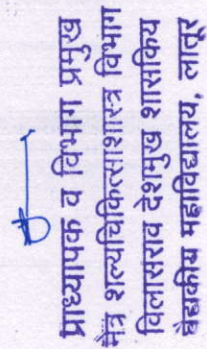 प्राध्यापक व विभाग प्रमुख
नेत्र शल्यचिकित्साशास्त्र विभाग
विलासराव देशमुख शासकिय
वैद्यकीय महाविद्यालय, लातूर